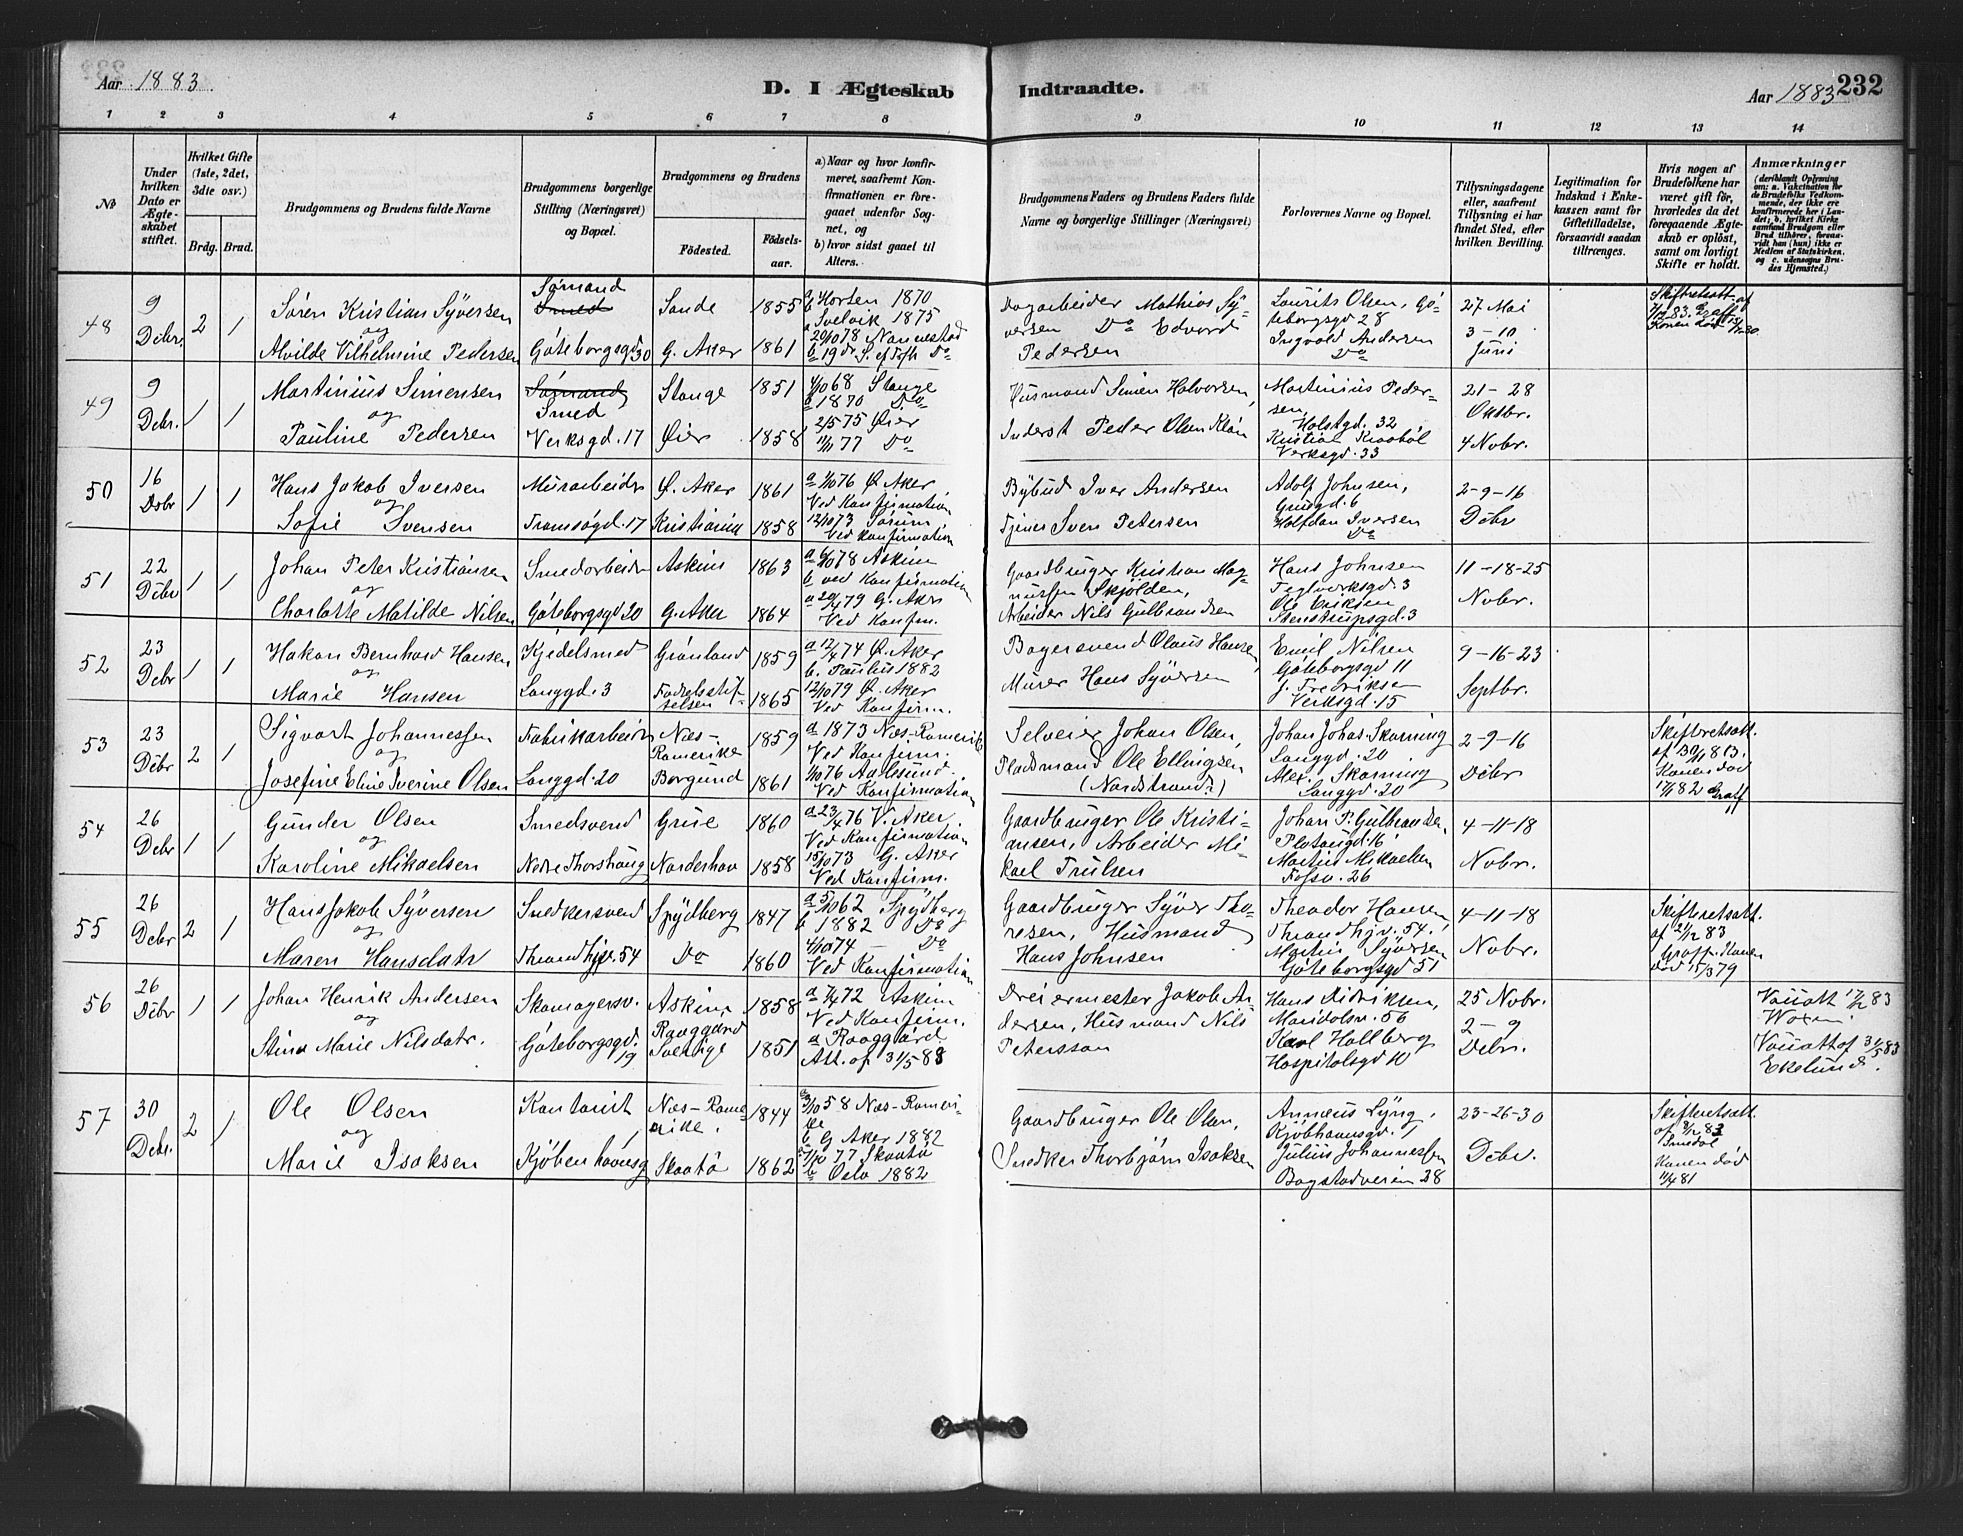 Aar 1883.
D. I Ægteskab Indtraadte.
Aar 1883 232
1 2 3 4 5 6 7 8 9 10 11 12 13 14
No
Under hvilken Dato er Ægteskabet stiftet.
Hvilket Gifte (1ste, 2det, 3die osv.)
Brdg. Brud.
Brudgommens og Brudens fulde Navne
Brudgommens borgerlige Stilling (Næringsvei) og Bopæl.
Brudgommens og Brudens
Födested. Födselsaar.
a) Naar og hvor konfirmeret, saafremt Konfirmationen er foregaaet udenfor Sognet, og
b) hvor sidst gaaet til Alters.
Brudgommens Faders og Brudens Faders fulde Navne og borgerlige Stillinger (Næringsvei)
Forlovernes Navne og Bopæl.
Tillysningsdagene eller, saafremt Tillysning ei har fundet Sted, efter hvilken Bevilling.
Legitimation for Indskud i Enkekassen samt for Giftetilladelse, forsaavidt saadan tiltrænges.
Hvis nogen af Brudefolkene har været gift før, hvorledes da det foregaaende Ægteskab er oplöst, samt om lovligt Skifte er holdt.
Anmærkninger
(deriblandt Oplysning om: a. Vakcination for de Brudefolks Vedkommende, der ikke ere konfirmerede her i Landet; b. hvilket Kirkesamfund Brudgom eller Brud tilhörer, forsaavidt han (hun) ikke er Medlem af Statskirken, og c. udensogns Brudes Hjemsted.)
48
9 Debr.
2 1
Søren Kristian Syversen
og
Alvilde Vilhelmine Pedersen
Sømand
Smed
Göteborgsgd 30
Sande 1855
G. Aker 1861
b Horten 1870
a Svelvik 1875
20/10 78 Nannestad
Dagarbeider Mathias Syversen
Do Edvard Pedersen
Laurits Olsen, Göteborgsgd 28
Ingvald Andersen
Do
27 Mai
3-10 Juni
Skifteretsatt. af
49
9 Debr.
1 1
Martinius Simensen
og
Pauline Pedersen
Sømand
Smed
Verksgd. 17
Stange 1851
Øier 1858
4/10 68 Stange
b 1870 Do
2/5 75 Øier
11/11 77 Do
Husmand Simen Halvorsen,
Inderst Peder Olsen
Martinius Pedersen,
Holstgd. 32
Kristian
Verksgd. 33
21-28
Oktbr.
4 Nobr.
50
16 Dsbr
1 1
Hans Jakob Iversen
og
Sofie Svensen
Murarbeider
Tromsögd. 17
Ø. Aker 1861
Kristiania 1858
a 1/10 76 Ø. Aker
Ved Konfirmation
12/10 73 Sørum
Ved Konfirmation
Bybud Iver Andersen
Tjener Sven Petersen
Adolf Johnsen,
Halfdan Iversen
Do
2-9-16
Debr
51
22 Debr
1 1
Johan Peter Kristiansen
og
Charlotte Matilde Nilsen
Smedarbeider
Göteborgsgd 20
Askim 1863
G. Aker 1864
a 6/10 78 Askim
b. ved Konfirmation
a 20/4 79 G. Aker
Ved Konfirm.
Gaardbruger Kristian Magnussen Skjolden,
Arbeider Nils Gulbrandsen
Hans Johnsen
Teglverksgd. 3
Ole Eriksen
Stenstrupsgd. 3
11-18-25
Nobr.
52
23 Debr
1 1
Hakon Bernhard Hansen
og
Marie Hansen
Kjedelsmed
Langgd. 3
Grønland 1859
Fødselsstiftelsen 1865
a 12/4 74 Ø. Aker
b. Paulus 1882
12/10 79 Ø. Aker
Ved Konfirm.
Bagersvend Olaus Hansen,
Murer Hans Syversen
Emil Nilsen
Göteborgsgd 11
J. Fredriksen
Verksgd. 15
9-16-23
Septbr.
53
23 Debr
2 1
Sigvart Johannessen
og
Josefine Eline Iverine Olsen
Fabrikarbeider
Langgd. 20
Næs-Romerike 1859
Borgund 1861
a 1873 Næs-Romerike
Ved Konfirm.
1/10 76 Aalesund
Ved Konfirmation
Selveier Johan Olsen,
Pladsmand Ole Ellingsen
(Nordstrand?)
Johan Johas. Skarning
Langgd. 20
Alex. Skarning
Langgd. 20
2-9-16
Debr
Skifteretsatt.
af 30/11 83.
Konen död
17/11 82 Graff
54
26 Debr
1 1
Gunder Olsen
og
Karoline Mikaelsen
Smedsvend
Nedre Thorshaug
Grue 1860
Norderhov 1858
a 23/4 76 V. Aker
Ved Konfirmation
15/10 73 G. Aker
Ved Konfirm.
Gaardbruger Ole Kristiansen, Arbeider Mikael Trulsen
Johan P. Gulbrandsen,
Martin Mikaelsen
Fossv. 26
4-11-18
Nobr.
55
26 Debr
2 1
Hans Jakob Syversen
og
Maren Hansdatr
Snedkersvend
Throndhjv. 54
Spydberg 1847
Do 1860
a 5/10 62 Spydberg
b 1882 Do
4/10 74 — Do
Ved Konfirmation
Gaardbruger Syver Thoresen, Husmand Hans Johnsen
Theodor Hansen
Throndhjv. 54.
Martin Syversen
Göteborgsgd 51
4-11-18
Nobr.
Skifteretsatt.
af 21/12 83
Graff. Konen
död 15/3 79
56
26 Debr
1 1
Johan Henrik Andersen
og
Stina Marie Nilsdatr.
Skomagersv.
Göteborgsgd. 19
Askim, 1858
Raaggärd Sverige 1851
a 7/4 72 Askim
Ved Konfirm.
a Raaggärd
Att. af 31/5 83
Dreiermester Jakob Andersen, Husmand Nils Petersson
Hans Didriksen,
Maridalsv. 56
Karl Hallberg
Hospitalsgd 10
25 Nobr.
2-9
Debr.
Vaccatt 17/12 83
Woxen.
Vaccatt af 31/5 83
Ekelund.
57
30 Debr.
2 1
Ole Olsen
og
Marie Isaksen
Kontorist
Kjöbenhavnsg
Næs-Romerike. 1844
Skaatø 1862
3/10 58 Næs-Romerike
b G. Aker 1882
7/10 77 Skaatø
b Oslo 1882
Gaardbruger Ole Olsen,
Snedker Thorbjørn Isaksen
Annæus Lyng,
Kjöbhavnsgd. 1
Julius Johannessen
Bogstadveien 28
23-26-30
Debr.
Skifteretsatt.
af 3/12 83
Smedal
Konen död
11/4 81